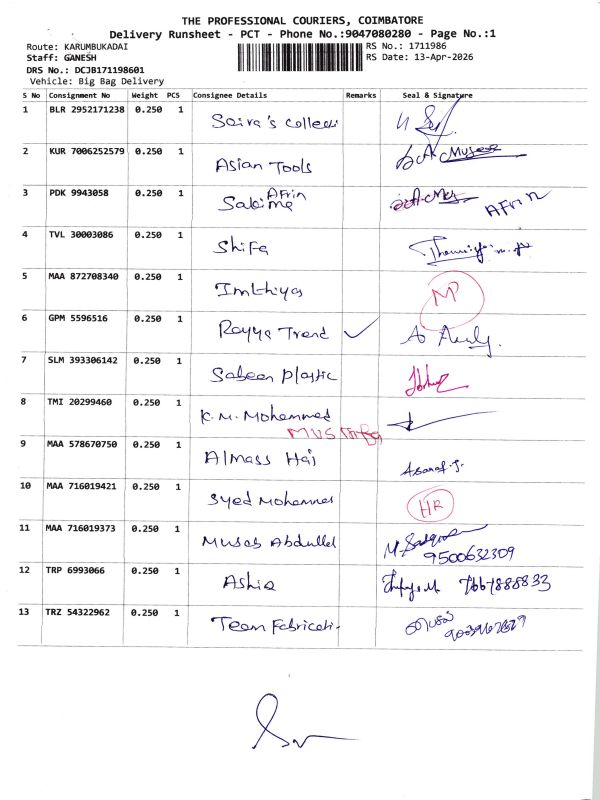 THE PROFESSIONAL COURIERS, COIMBATORE
Delivery Runsheet - PCT - Phone No.:9047080280 - Page No.:1
Route: KARUMBUKADAI
RS No.: 1711986
Staff: GANESH
RS Date: 13-Apr-2026
DRS No.: DCJB171198601
Vehicle: Big Bag Delivery
S No Consignment No Weight PCS Consignee Details Remarks Seal & Signature
1 BLR 2952171238 0.250 1 Saira's Collecti
2 KUR 7006252579 0.250 1 Asian Tools
3 PDK 9943058 0.250 1 Sakima Afrin AFrin
4 TVL 30003086 0.250 1 Shifa
5 MAA 872708340 0.250 1 Imthiyas MP
6 GPM 5596516 0.250 1 Rayya Trend ✓
7 SLM 393306142 0.250 1 Sabeen Plastic
8 TMI 20299460 0.250 1 K.M. Mohammed
9 MAA 578670750 0.250 1 Almass Haj Asaraf.J.
10 MAA 716019421 0.250 1 Syed Mohammed HR
11 MAA 716019373 0.250 1 Musab Abdullah
9500632309
12 TRP 6993066 0.250 1 Ashia 7667888833
13 TRZ 54322962 0.250 1 Team Fabricati.